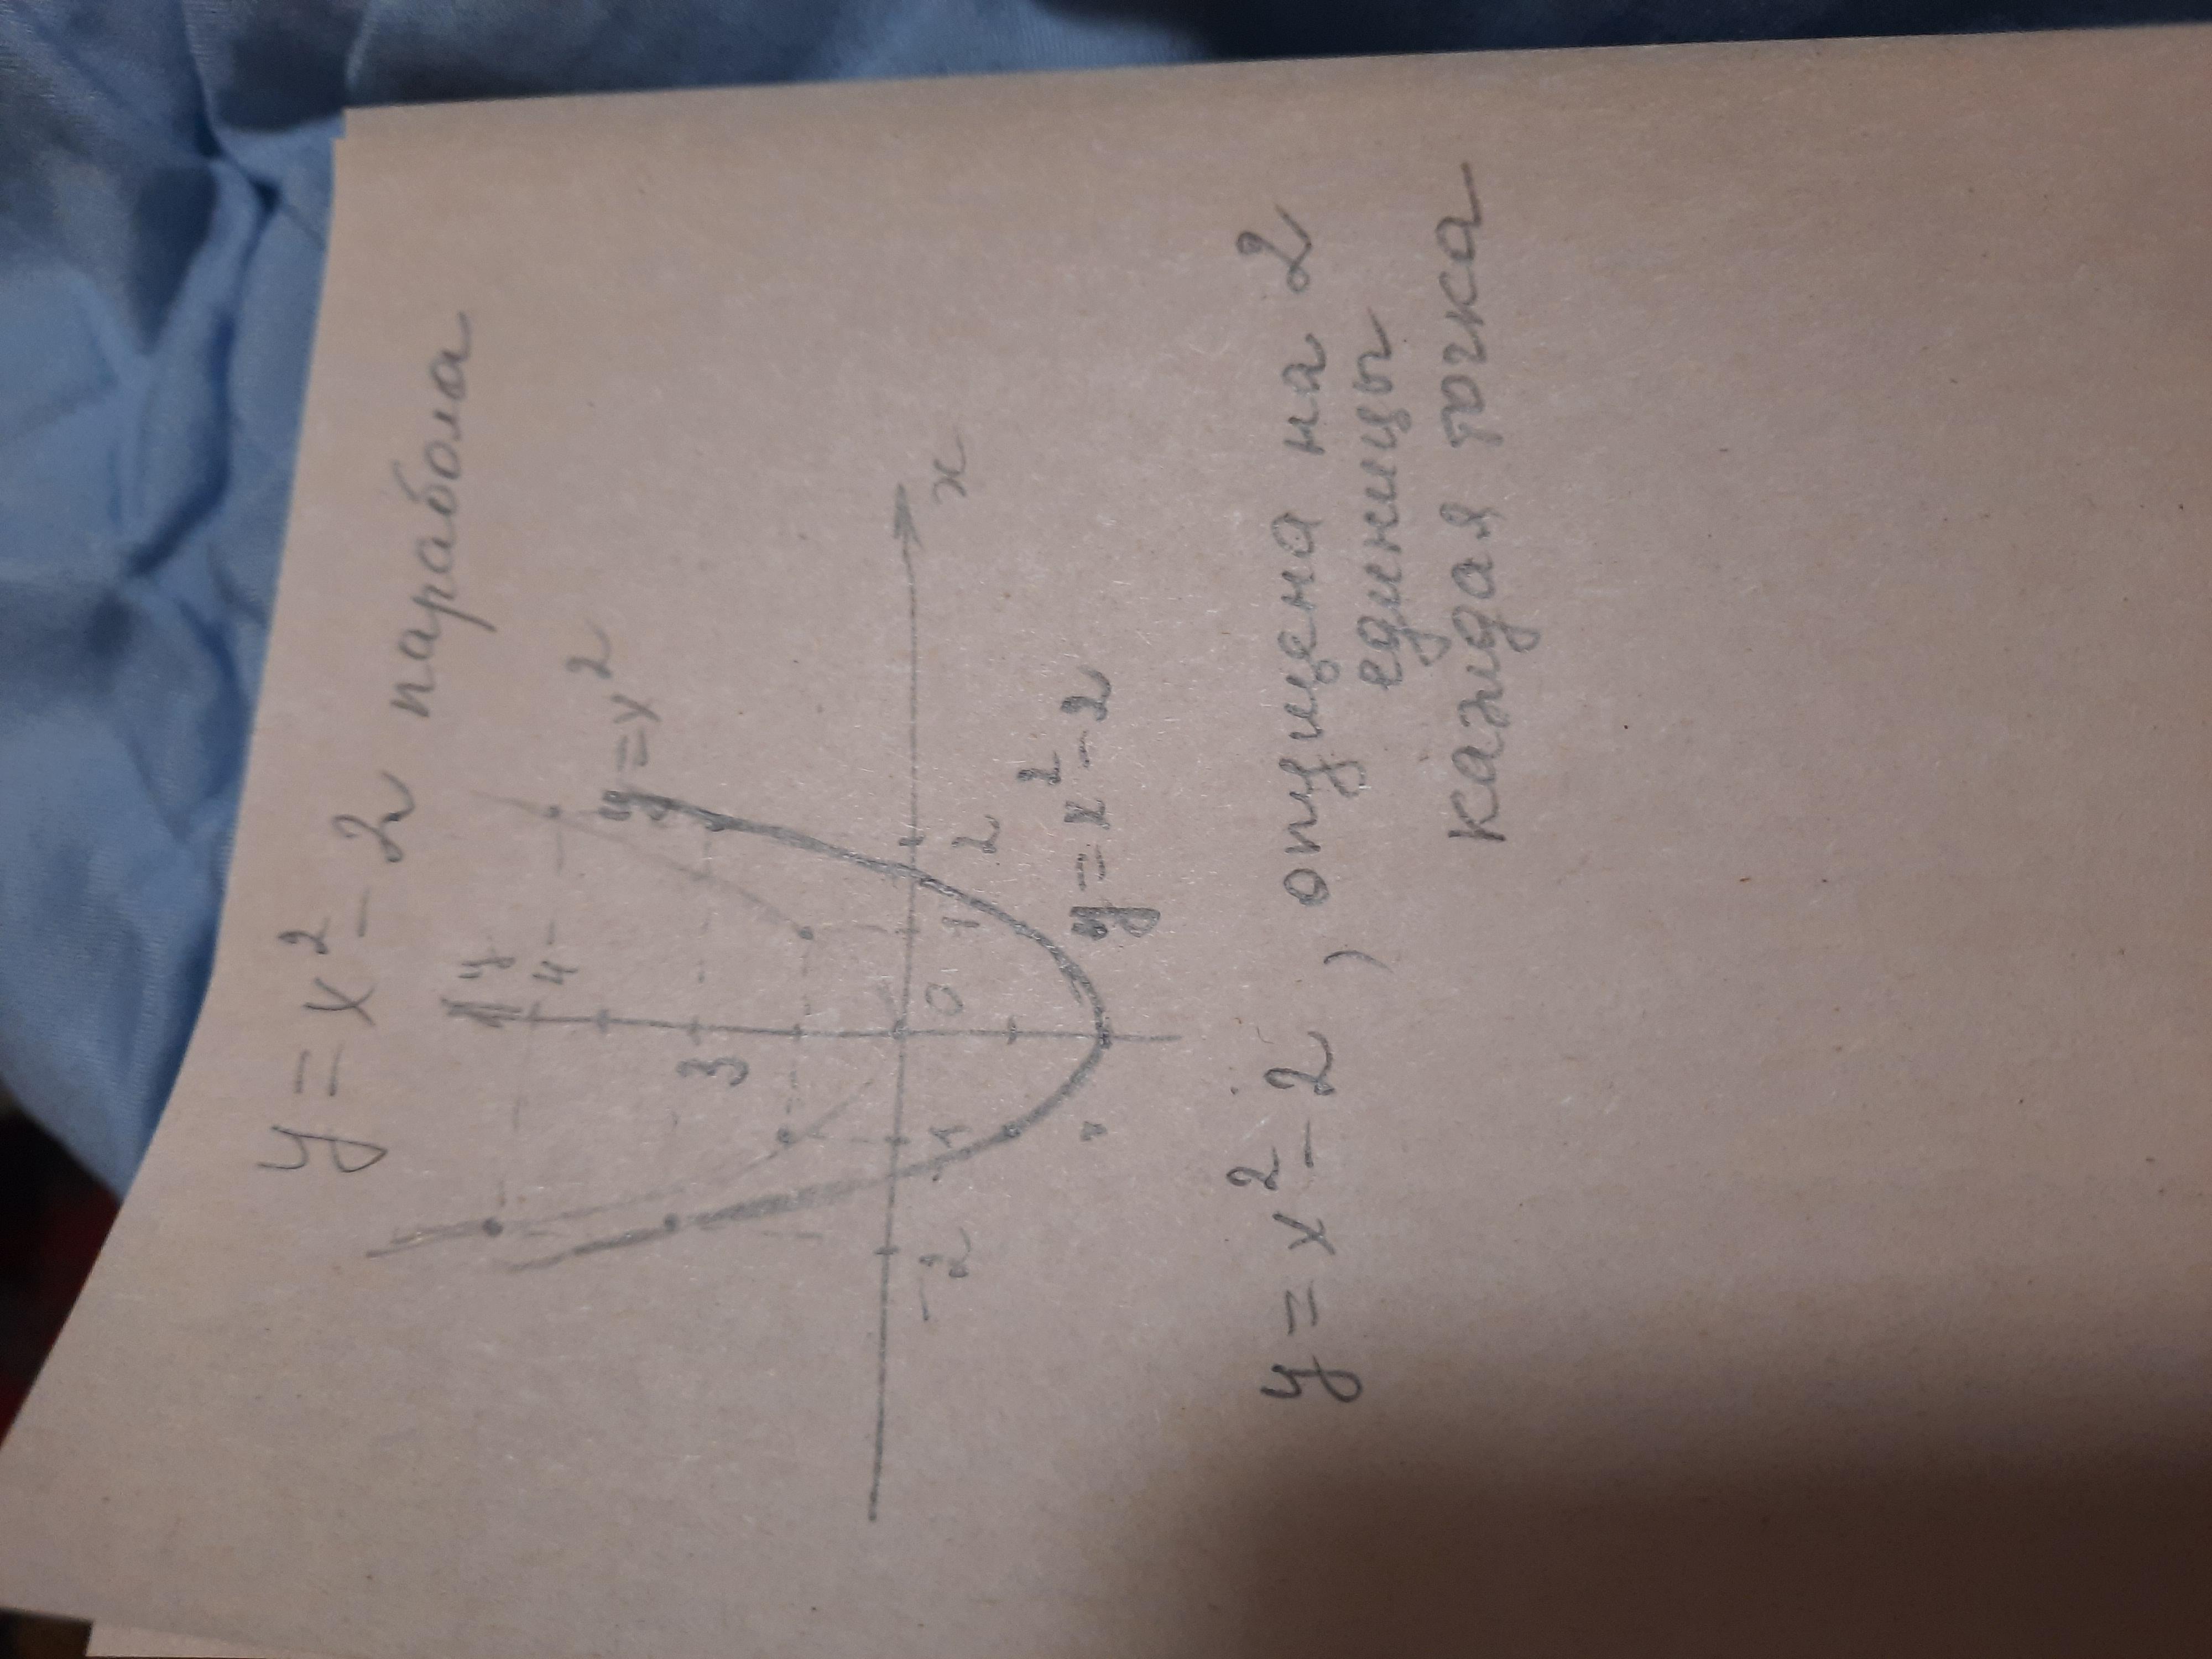 y = x² - 2 парабола
y
4
y = x²
3
-2 -1 0 1 2 x
y = x² - 2
y = x² - 2, опущена на 2
единицы
каждая точка